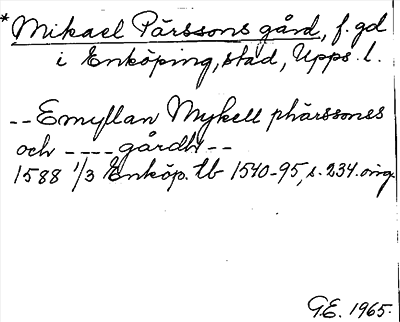 *Mikael Pärssons gård, f. gd
i Enköping, stad, Upps. l.
-- Emyllan Mykell phärssones
och ---- gårdh --
1588 1/3 Enköp. tb 1540-95, s. 234. orig.
G.E. 1965.